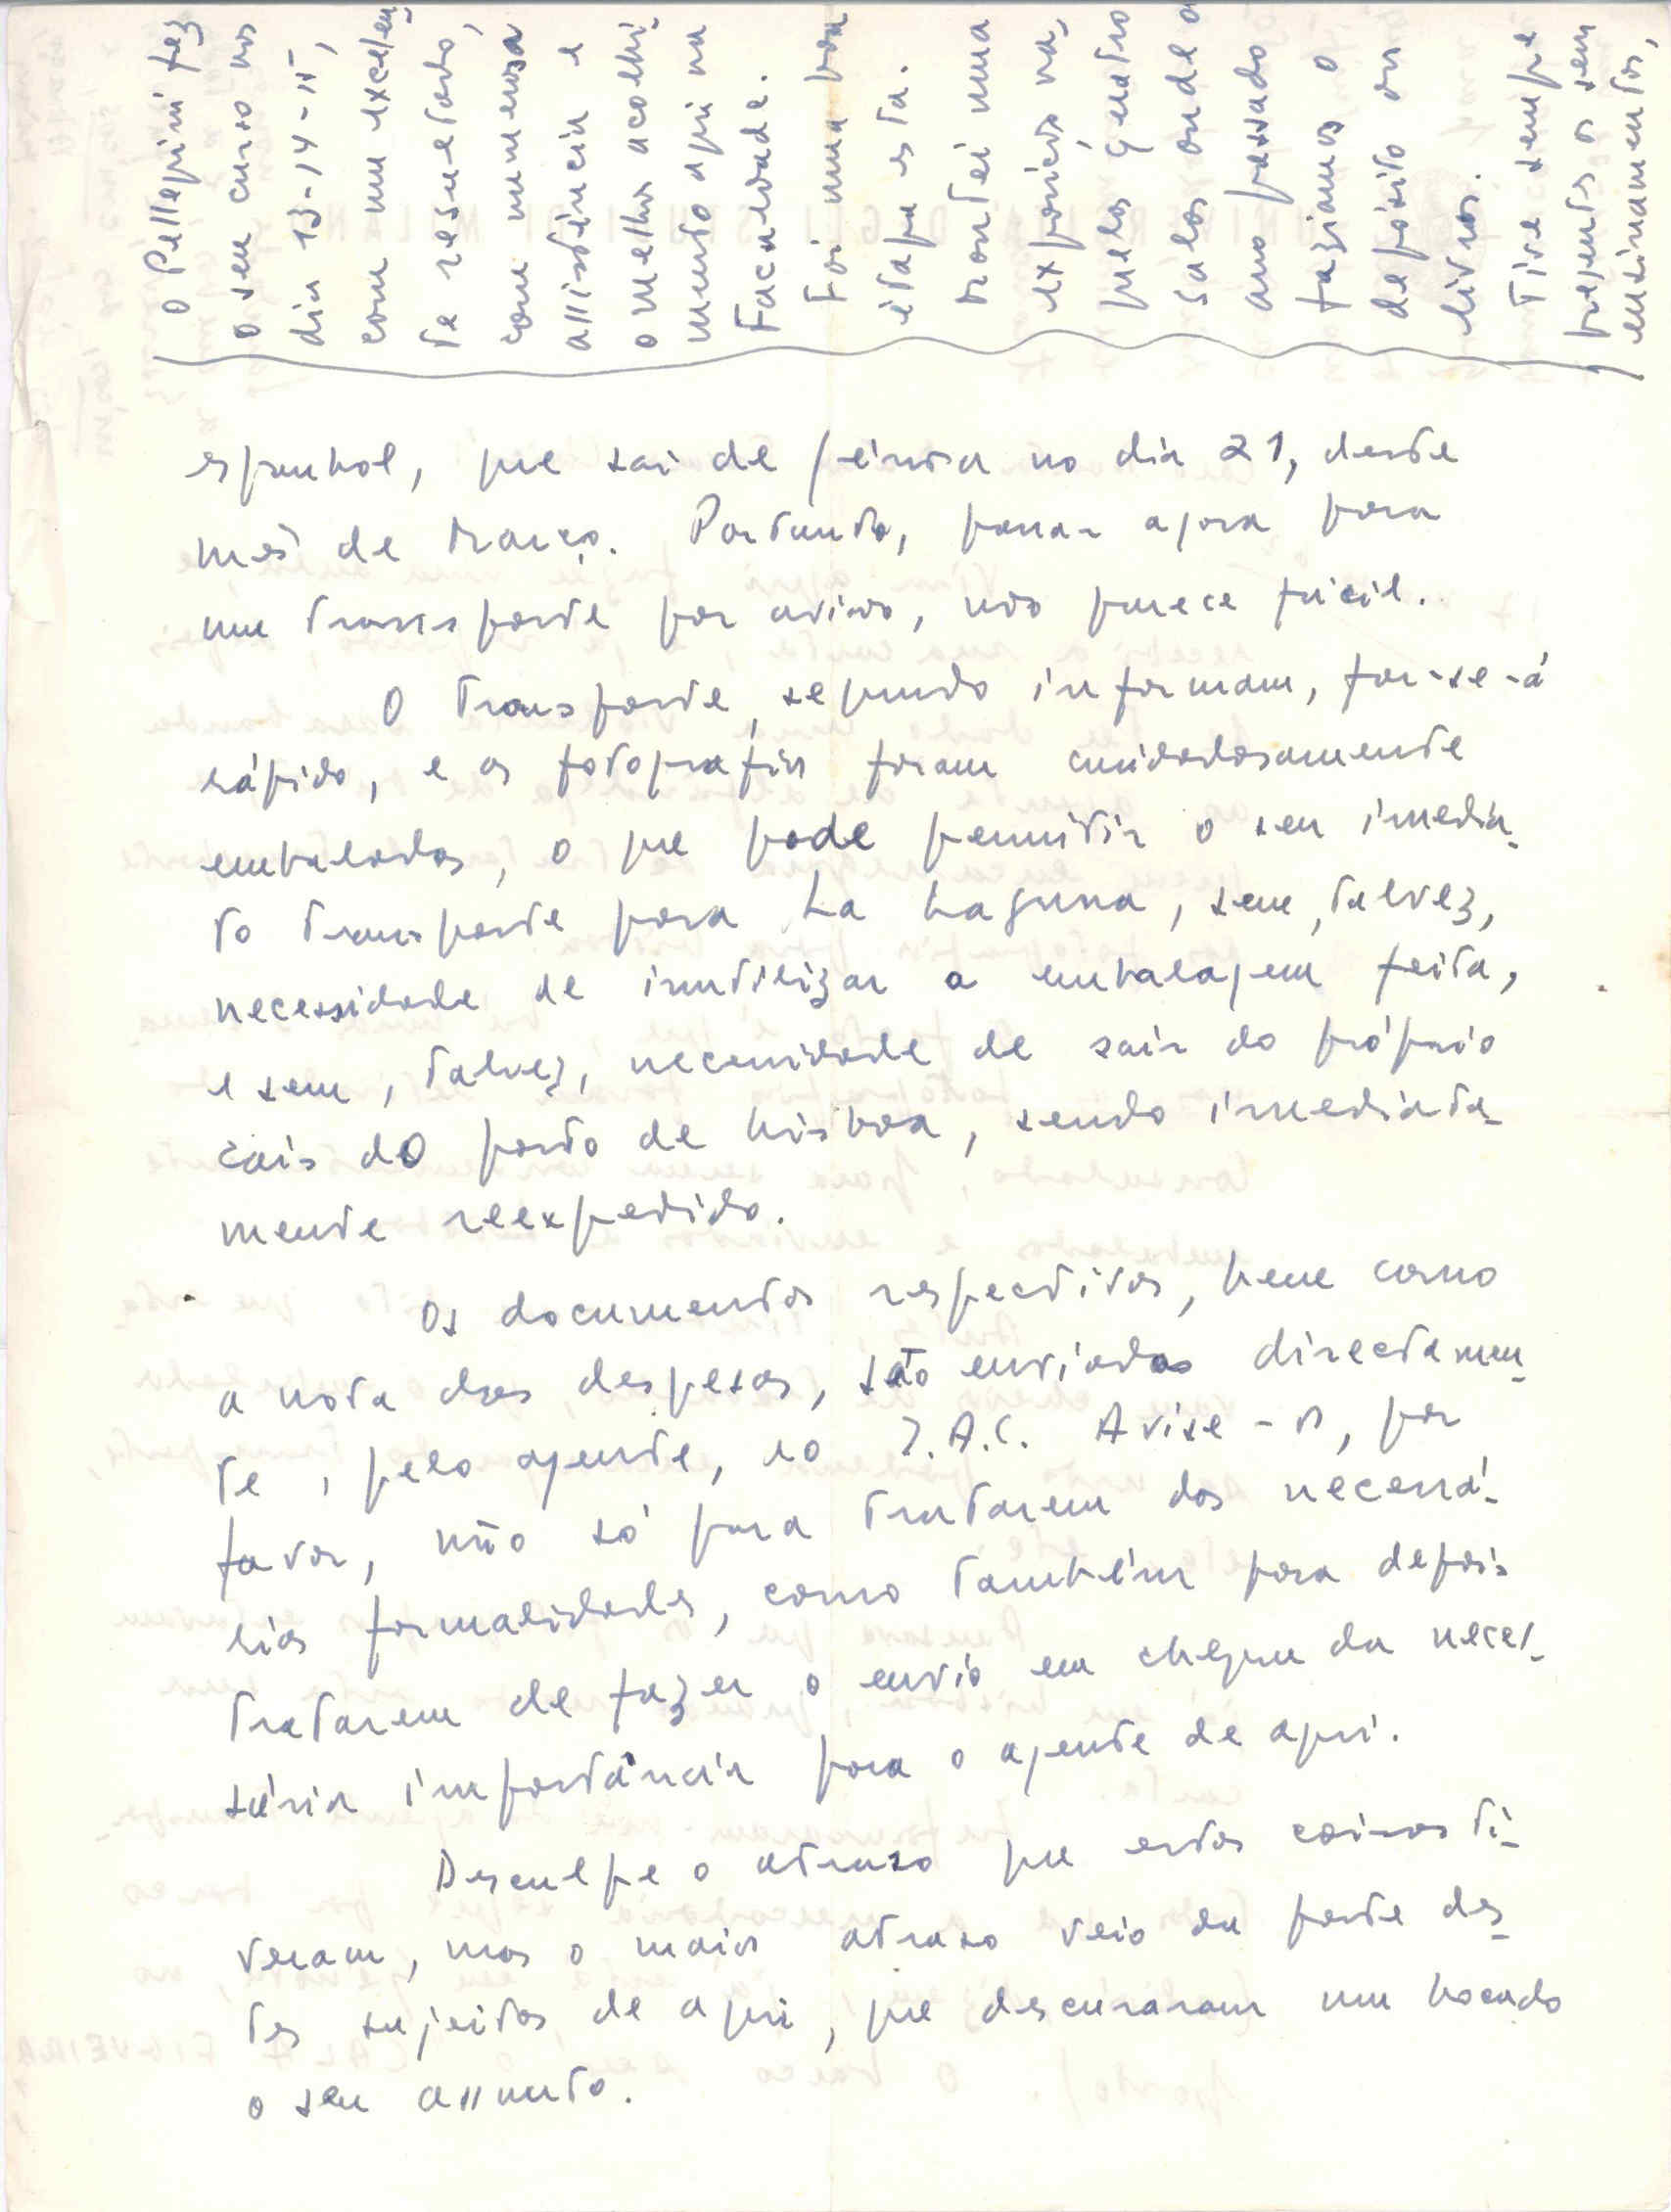 O Pellegrini fez
o seu curso nos
dia 13-14-15,
com um excelen-
te resultado,
com numerosa
assistência e
o melhor acolhi-
mento aqui na
Faculdade.
Foi uma boa
etapa esta.
Montei uma
exposição na,
pelas quatro
salas onde o
ano passado
faziamos o
depósito dos
livros.
Tive sempre
presentes os seus
ensinamentos,
espanhol, que sai de Génova no dia 21, deste
mês de Março. Portanto, passar agora para
um transporte por avião, não parece fácil.
O transporte, segundo informam, far-se-á
rápido, e as fotografias foram cuidadosamente
embaladas, o que pode permitir o seu imedia-
to transporte para La Laguna, sem, talvez,
necessidade de inutilizar a embalagem feita,
e sem, talvez, necessidade de sair do próprio
cais do porto de Lisboa, sendo imediata-
mente reexpedido.
Os documentos respectivos, bem como
a nota das despesas, são enviados directamen-
te, pelo agente, ao I.A.C. Avise-os, por
favor, não só para tratarem das necessá-
rias formalidades, como também para depois
tratarem de fazer o envio em cheque da neces-
sária importância para o agente de aqui.
Desculpe o atraso que estas coisas ti-
veram, mas o maior atraso veio da parte des-
tes sujeitos de aqui, que descuraram um bocado
o seu assunto.